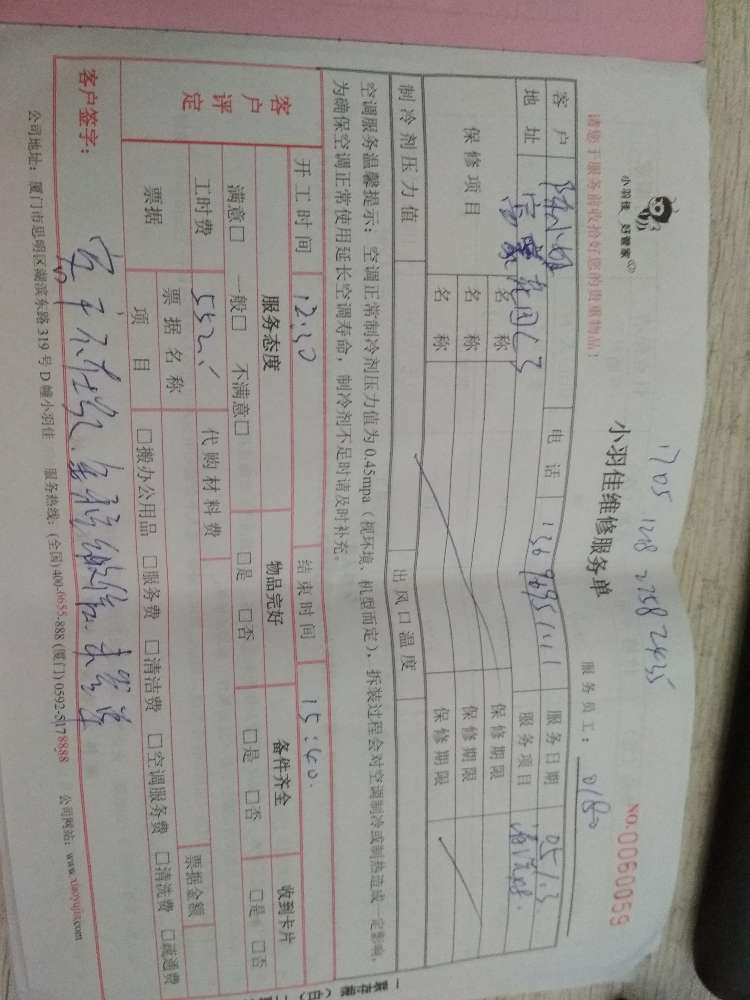 小羽佳 好管家
1705 1218 2258 2435
小羽佳维修服务单
请您于服务前收拾好您的贵重物品！
服务员工：
NO.0060059
客户 陈小姐 电话 服务日期 05/.3
地址 富豪花园 服务项目 清洗
保修项目 名称 保修期限
名称 保修期限
名称 保修期限
制冷剂压力值 出风口温度
空调服务温馨提示：空调正常制冷剂压力值为0.45mpa（视环境、机型而定），拆装过程会对空调制冷或制热造成一定影响，
为确保空调正常使用延长空调寿命，制冷剂不足时请及时补充。
开工时间 12:30 结束时间 15:40.
客户评定 服务态度 物品完好 备件齐全 收到卡片
满意□ 一般□ 不满意□ □是 □否 □是 □否 □是 □否
工时费 552 代购材料费
票据 票据名称 票据金额
项目 □搬办公用品 □服务费 □清洁费 □空调服务费 □清洗费 □疏通费
客户签字： 客户不在
公司地址：厦门市思明区湖滨东路319号D幢小羽佳 服务热线：(全国)400-0655-888 (厦门)0592-5178888 公司网站：www.xiaoyujia.com